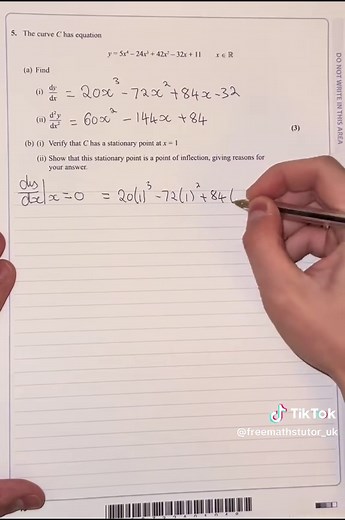 5. The curve C has equation
y = 5x⁴ – 24x³ + 42x² – 32x + 11 x ∈ ℝ
(a) Find
(i) dy/dx = 20x³ - 72x² + 84x - 32
(ii) d²y/dx² = 60x² - 144x + 84
(3)
(b) (i) Verify that C has a stationary point at x = 1
(ii) Show that this stationary point is a point of inflection, giving reasons for
your answer.
dy/dx | x=0 = 20(1)³ - 72(1)² + 84(
DO NOT WRITE IN THIS AREA
TikTok
@freemathstutor_uk